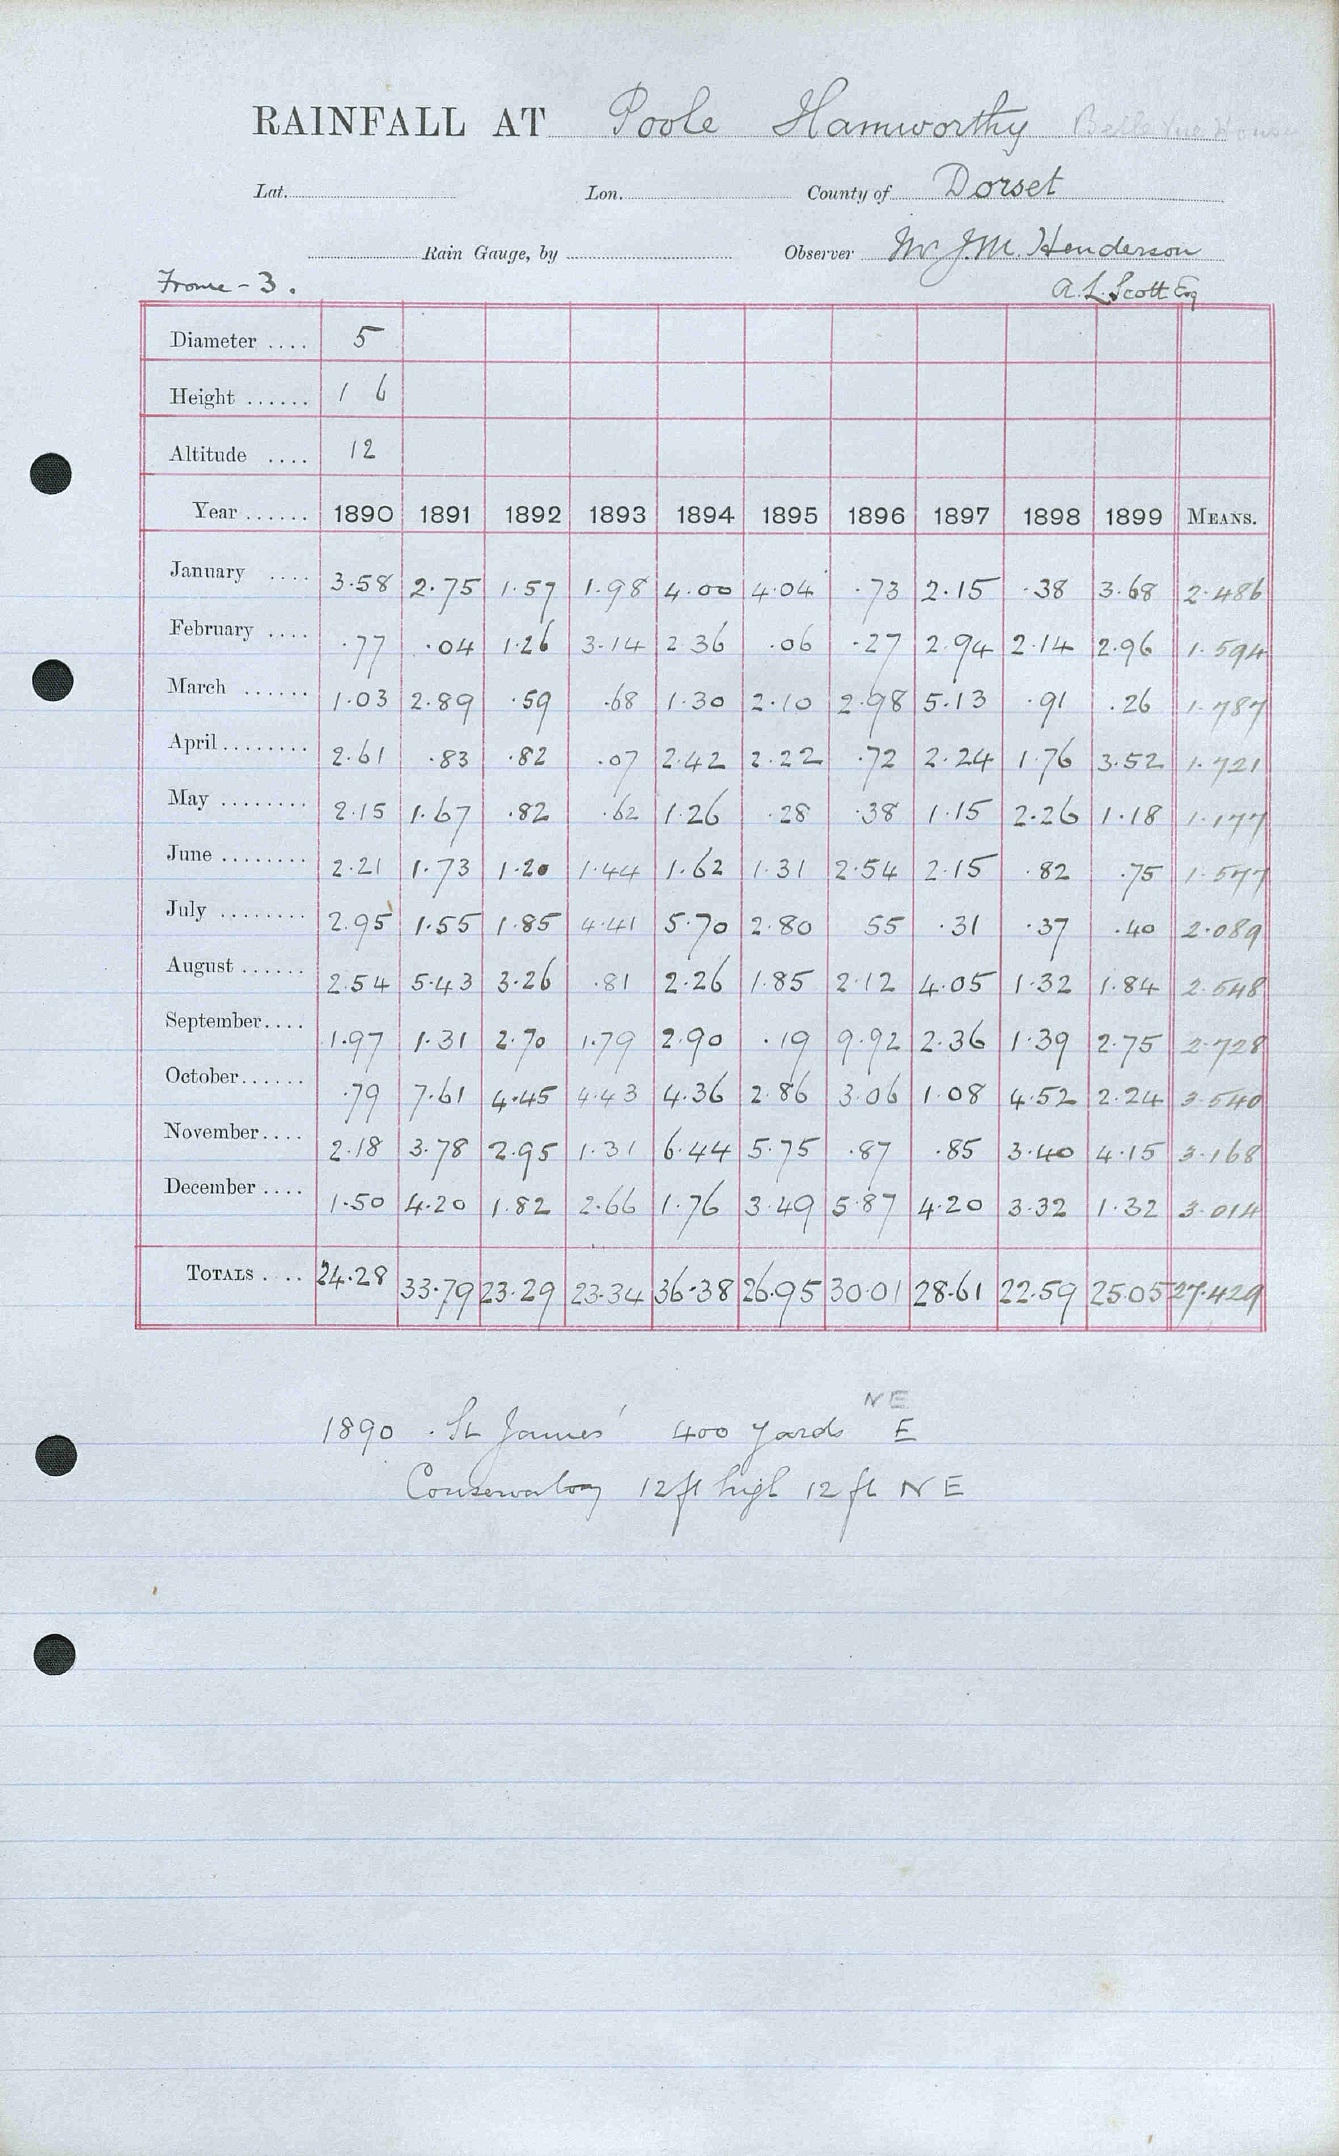 RAINFALL AT Poole Hamworthy Belle Vue House
Lat. Lon. County of Dorset
Rain Gauge, by Observer Mr J.M. Henderson
Frome - 3. A. L. Scott Esq
Diameter .... 5
Height ...... 1 6
Altitude .... 12
Year ...... 1890 1891 1892 1893 1894 1895 1896 1897 1898 1899 MEANS.
January .... 3.58 2.75 1.57 1.98 4.00 4.04 .73 2.15 .38 3.68 2.486
February .... .77 .04 1.26 3.14 2.36 .06 .27 2.94 2.14 2.96 1.594
March ...... 1.03 2.89 .59 .68 1.30 2.10 2.98 5.13 .91 .26 1.787
April........ 2.61 .83 .82 .07 2.42 2.22 .72 2.24 1.76 3.52 1.721
May ........ 2.15 1.67 .82 .62 1.26 .28 .38 1.15 2.26 1.18 1.177
June ........ 2.21 1.73 1.20 1.44 1.62 1.31 2.54 2.15 .82 .75 1.577
July ........ 2.95 1.55 1.85 4.41 5.70 2.80 55 .31 .37 .40 2.089
August ...... 2.54 5.43 3.26 .81 2.26 1.85 2.12 4.05 1.32 1.84 2.548
September.... 1.97 1.31 2.70 1.79 2.90 .19 9.92 2.36 1.39 2.75 2.728
October...... .79 7.61 4.45 4.43 4.36 2.86 3.06 1.08 4.52 2.24 3.540
November.... 2.18 3.78 2.95 1.31 6.44 5.75 .87 .85 3.40 4.15 3.168
December .... 1.50 4.20 1.82 2.66 1.76 3.49 5.87 4.20 3.32 1.32 3.014
TOTALS .... 24.28 33.79 23.29 23.34 36.38 26.95 30.01 28.61 22.59 25.05 27.429
NE
1890 . St James' 400 yards E
Conservatory 12 ft high 12 ft NE